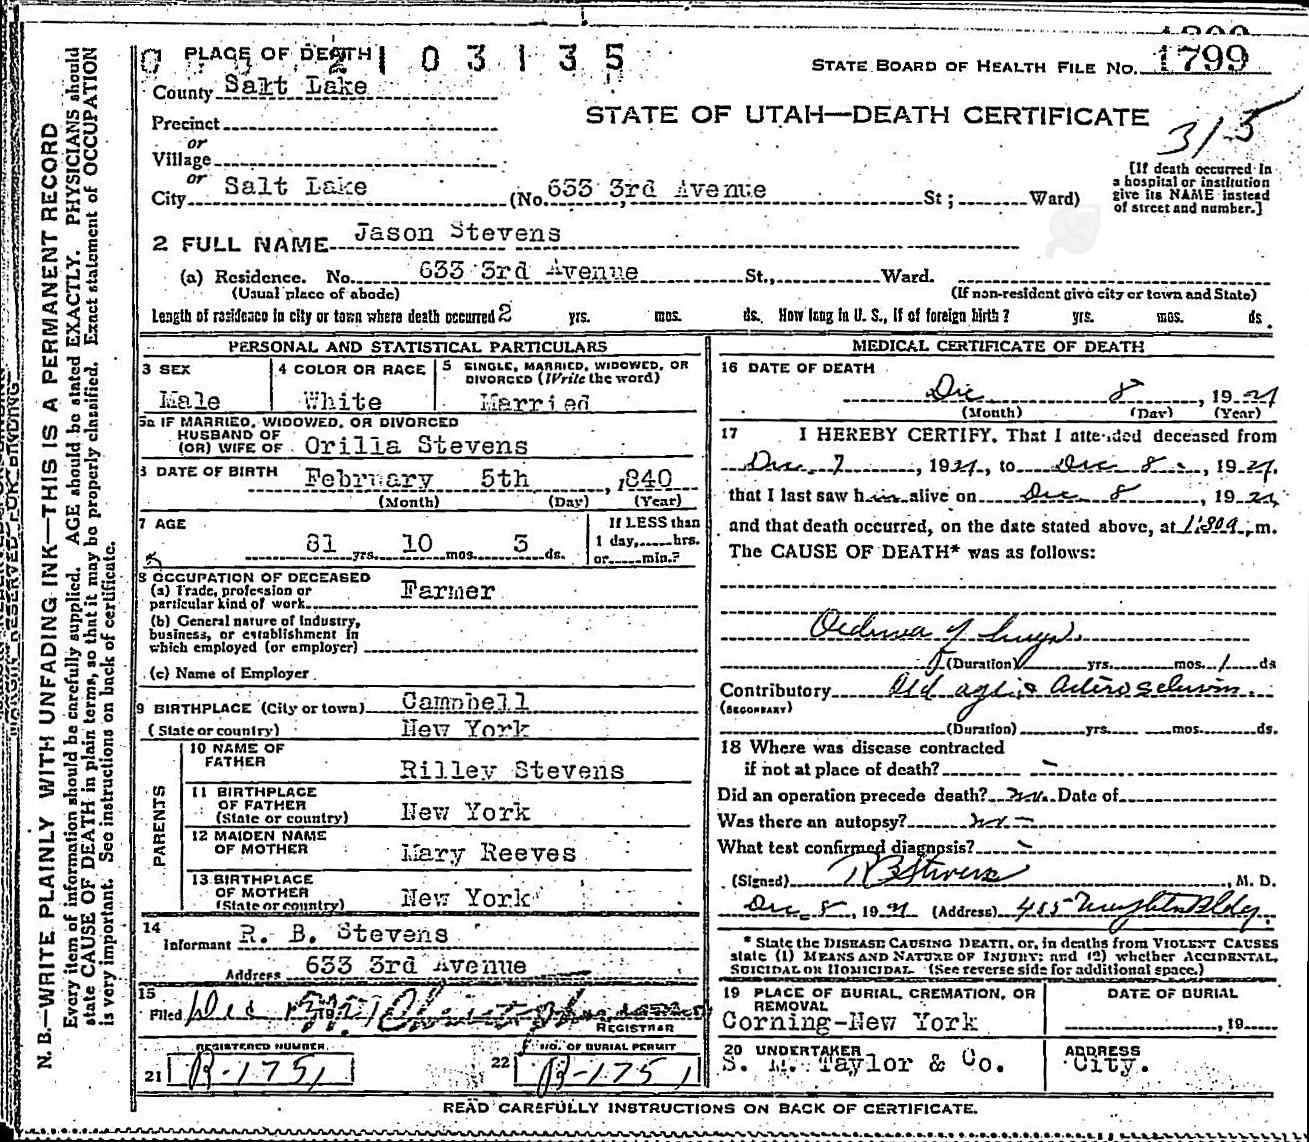 1799
PLACE OF DEATH
2103135
STATE BOARD OF HEALTH FILE NO. 1799
County Salt Lake
STATE OF UTAH—DEATH CERTIFICATE
315
Precinct
or
Village
or
City Salt Lake (No. 633 3rd Avenue St; Ward)
[If death occurred in
a hospital or institution
give its NAME instead
of street and number.]
2 FULL NAME Jason Stevens
(a) Residence. No. 633 3rd Avenue St., Ward.
(Usual place of abode) (If non-resident give city or town and State)
Length of residence in city or town where death occurred 2 yrs. mos. ds. How long in U. S., if of foreign birth? yrs. mos. ds.
PERSONAL AND STATISTICAL PARTICULARS
3 SEX
Male
4 COLOR OR RACE
White
5 SINGLE, MARRIED, WIDOWED, OR
DIVORCED (Write the word)
Married
5a IF MARRIED, WIDOWED, OR DIVORCED
HUSBAND OF
(OR) WIFE OF Orilla Stevens
6 DATE OF BIRTH February 5th, 1840
(Month) (Day) (Year)
7 AGE
81 yrs. 10 mos. 3 ds.
If LESS than
1 day, hrs.
or min.?
8 OCCUPATION OF DECEASED
(a) Trade, profession or
particular kind of work Farmer
(b) General nature of Industry,
business, or establishment in
which employed (or employer)
(c) Name of Employer
9 BIRTHPLACE (City or town) Campbell
(State or country) New York
PARENTS
10 NAME OF
FATHER Rilley Stevens
11 BIRTHPLACE
OF FATHER
(State or country) New York
12 MAIDEN NAME
OF MOTHER Mary Reeves
13 BIRTHPLACE
OF MOTHER
(State or country) New York
14
Informant R. B. Stevens
Address 633 3rd Avenue
15
Filed Dec
REGISTRAR
REGISTERED NUMBER
21 R-1751
NO. OF BURIAL PERMIT
22 R-1751
MEDICAL CERTIFICATE OF DEATH
16 DATE OF DEATH
Dec 8, 1921
(Month) (Day) (Year)
17 I HEREBY CERTIFY, That I attended deceased from
Dec 7, 1921, to Dec 8, 1921,
that I last saw him alive on Dec 8, 1921
and that death occurred, on the date stated above, at 1:30 m.
The CAUSE OF DEATH* was as follows:
Oedema of lungs.
(Duration) yrs. mos. 1 ds
Contributory Old age & Arterio
(SECONDARY)
(Duration) yrs. mos. ds.
18 Where was disease contracted
if not at place of death? -
Did an operation precede death? no. Date of
Was there an autopsy? no -
What test confirmed diagnosis? -
(Signed) R B Stevens, M. D.
Dec 8, 1921 (Address) 455 Bldg.
* State the DISEASE CAUSING DEATH, or, in deaths from VIOLENT CAUSES
state (1) MEANS AND NATURE OF INJURY; and (2) whether ACCIDENTAL,
SUICIDAL OR HOMICIDAL. (See reverse side for additional space.)
19 PLACE OF BURIAL, CREMATION, OR
REMOVAL
Corning-New York
DATE OF BURIAL
, 19
20 UNDERTAKER
S. M. Taylor & Co.
ADDRESS
City.
READ CAREFULLY INSTRUCTIONS ON BACK OF CERTIFICATE.
MARGIN RESERVED FOR BINDING
N. B.—WRITE PLAINLY WITH UNFADING INK—THIS IS A PERMANENT RECORD
Every item of information should be carefully supplied. AGE should be stated EXACTLY. PHYSICIANS should
state CAUSE OF DEATH in plain terms, so that it may be properly classified. Exact statement of OCCUPATION
is very important. See instructions on back of certificate.